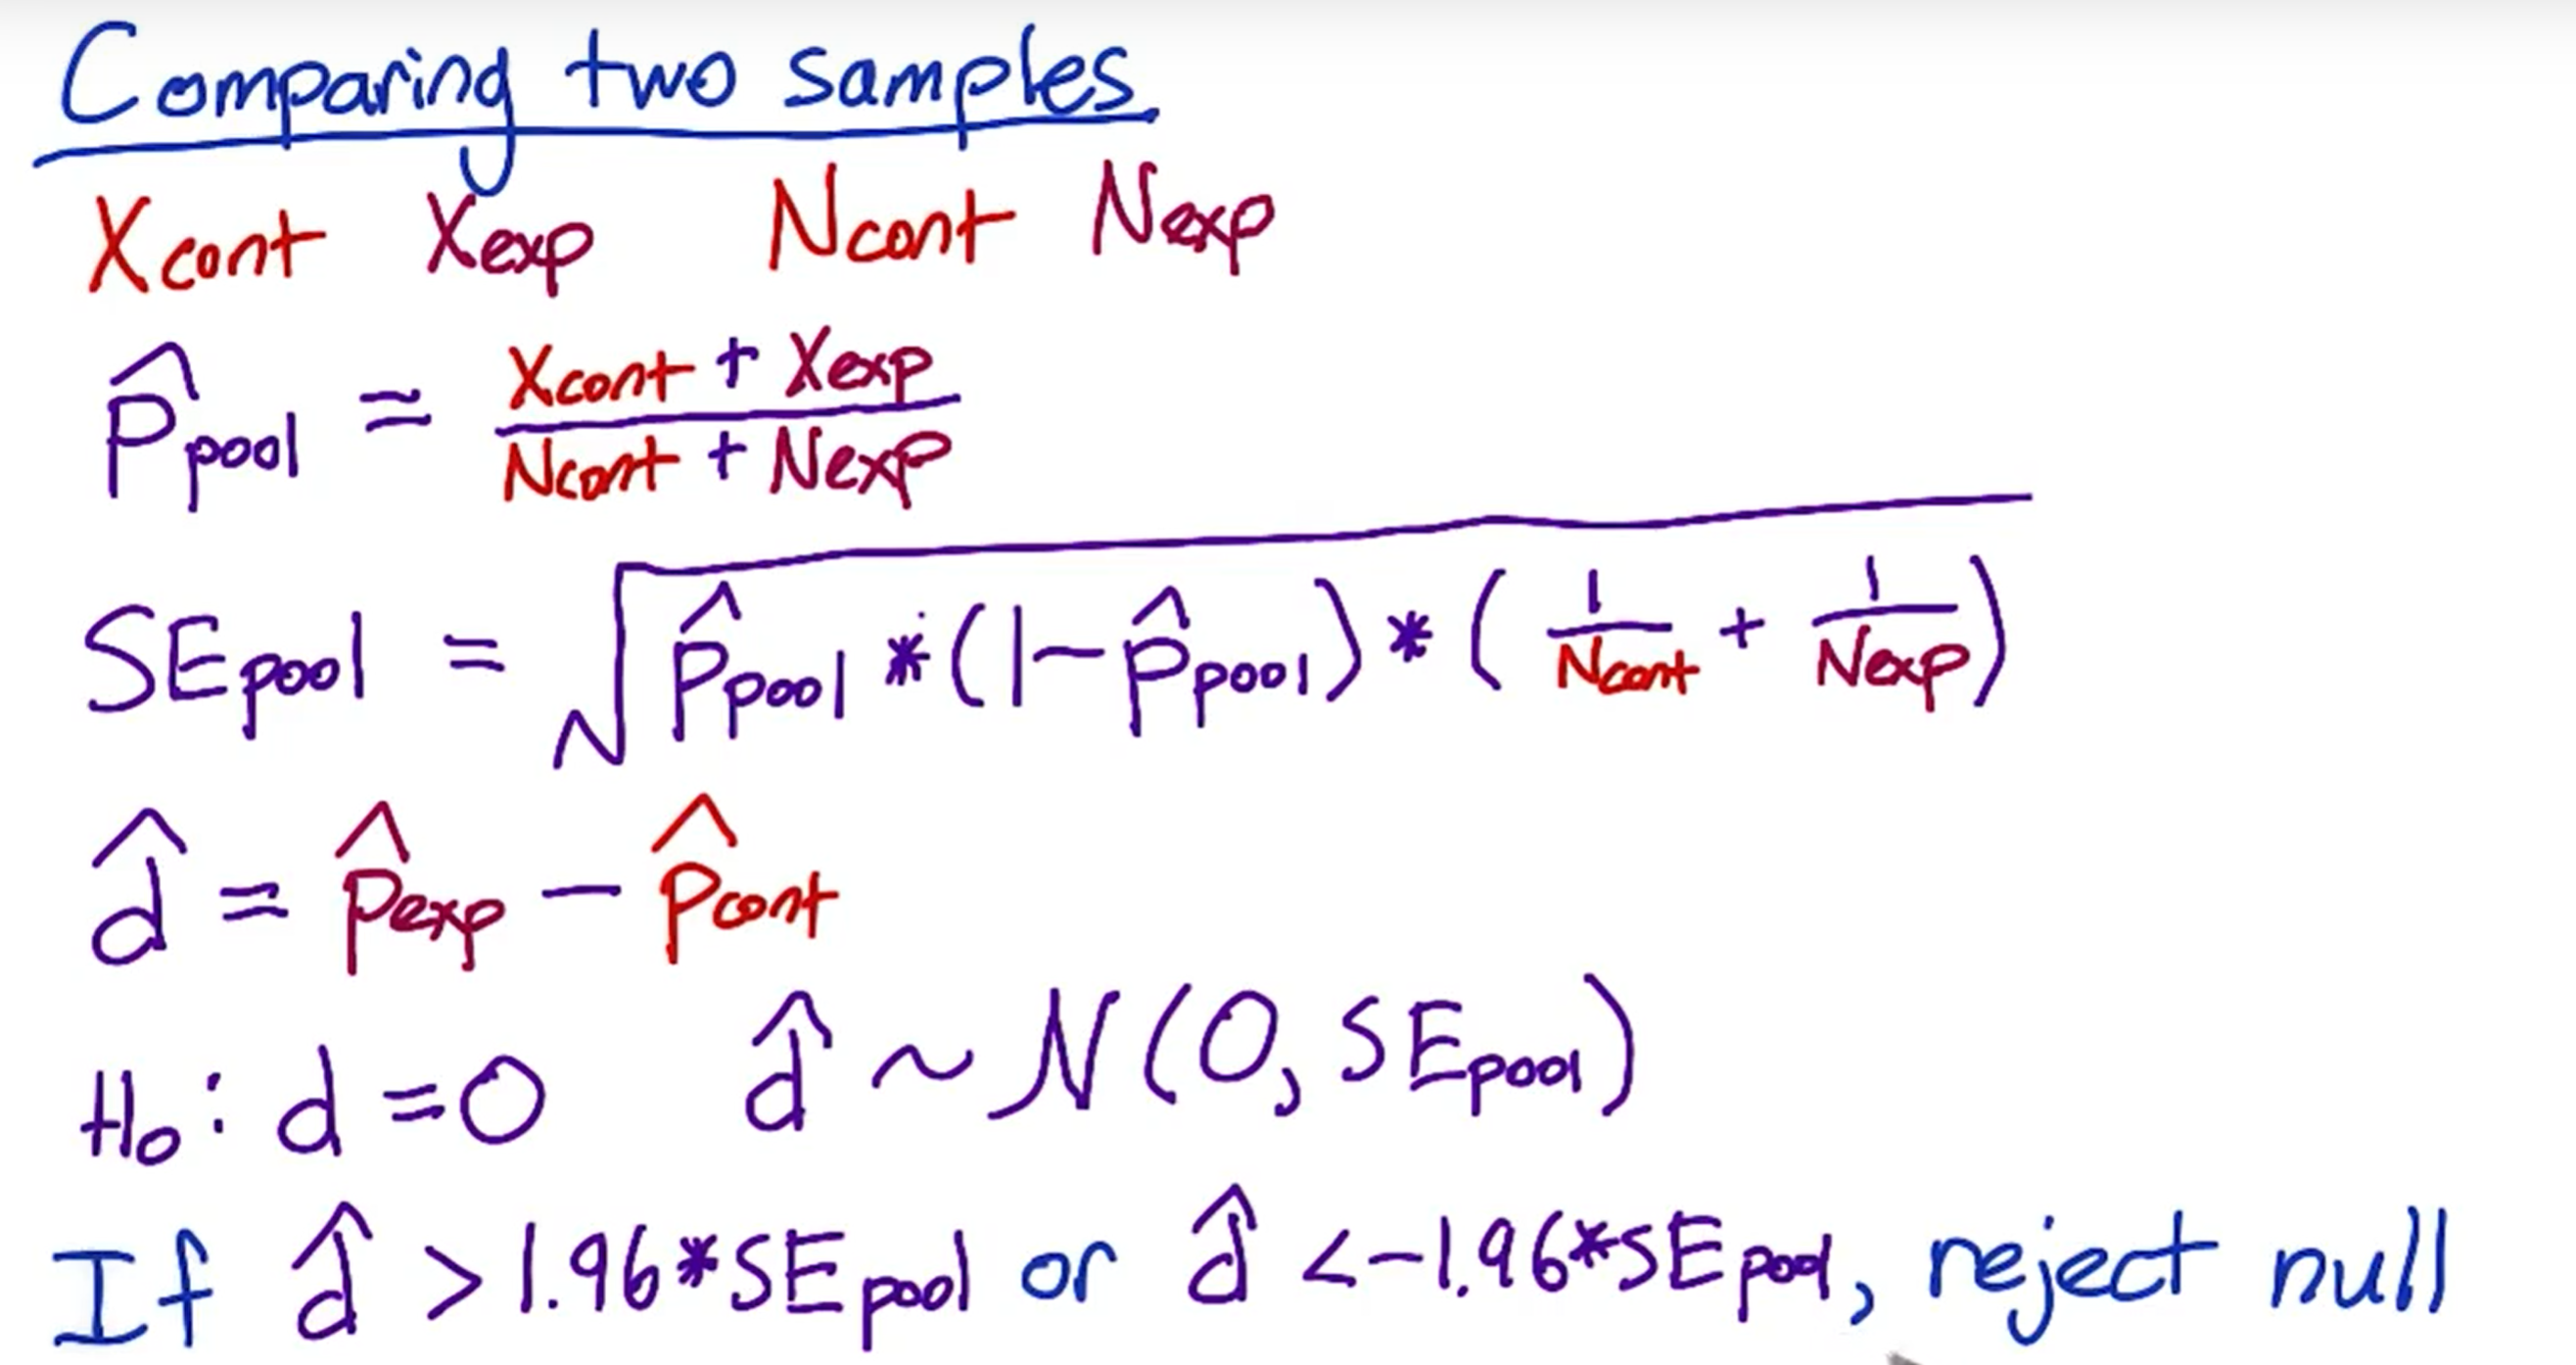 Comparing two samples
Xcont Xexp Ncont Nexp
P̂pool = (Xcont + Xexp) / (Ncont + Nexp)
SEpool = √(p̂pool * (1 - p̂pool) * (1/Ncont + 1/Nexp))
d̂ = p̂exp - p̂cont
H₀: d = 0 d̂ ~ N(0, SEpool)
If d̂ > 1.96*SEpool or d̂ < -1.96*SEpool, reject null